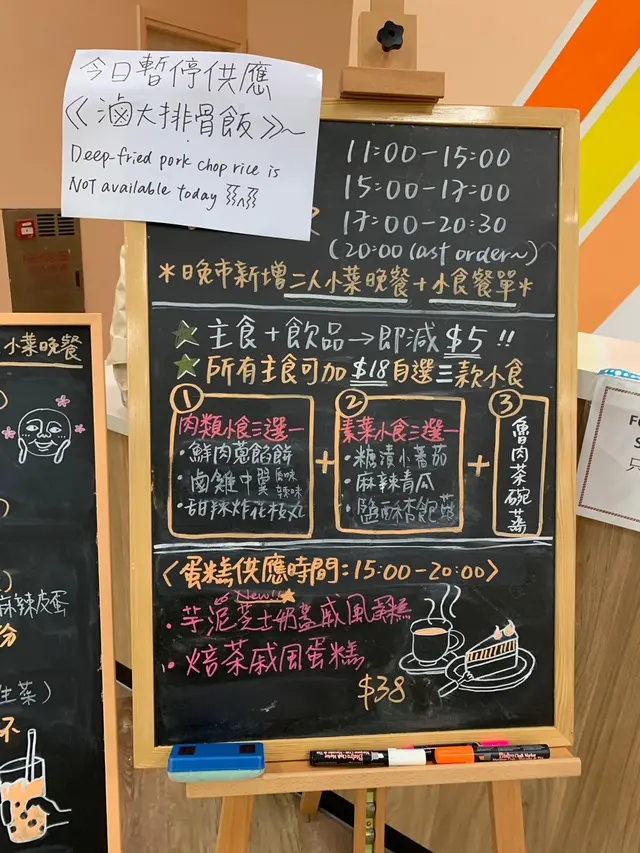 今日暫停供應
《滷大排骨飯》~
Deep-fried pork chop rice is
NOT available today
11:00-15:00
15:00-17:00
17:00-20:30
(20:00 last order~)
*晚市新增二人小菜晚餐+小食餐單*
主食+飲品→即減$5!!
所有主食可加$18自選三款小食
①
肉類小食三選一
・鮮肉蔥餡餅
・滷雞中翼 原味 辣味
・甜辣炸花枝丸
+
②
素菜小食三選一
・糖漬小蕃茄
・麻辣青瓜
・鹽酥杏鮑菇
+
③
魯肉茶碗蒸
<蛋糕供應時間:15:00-20:00>
New!!
・芋泥芝士奶蓋戚風蛋糕
・焙茶戚風蛋糕
$38
小菜晚餐
麻辣皮蛋
份
生菜)
不